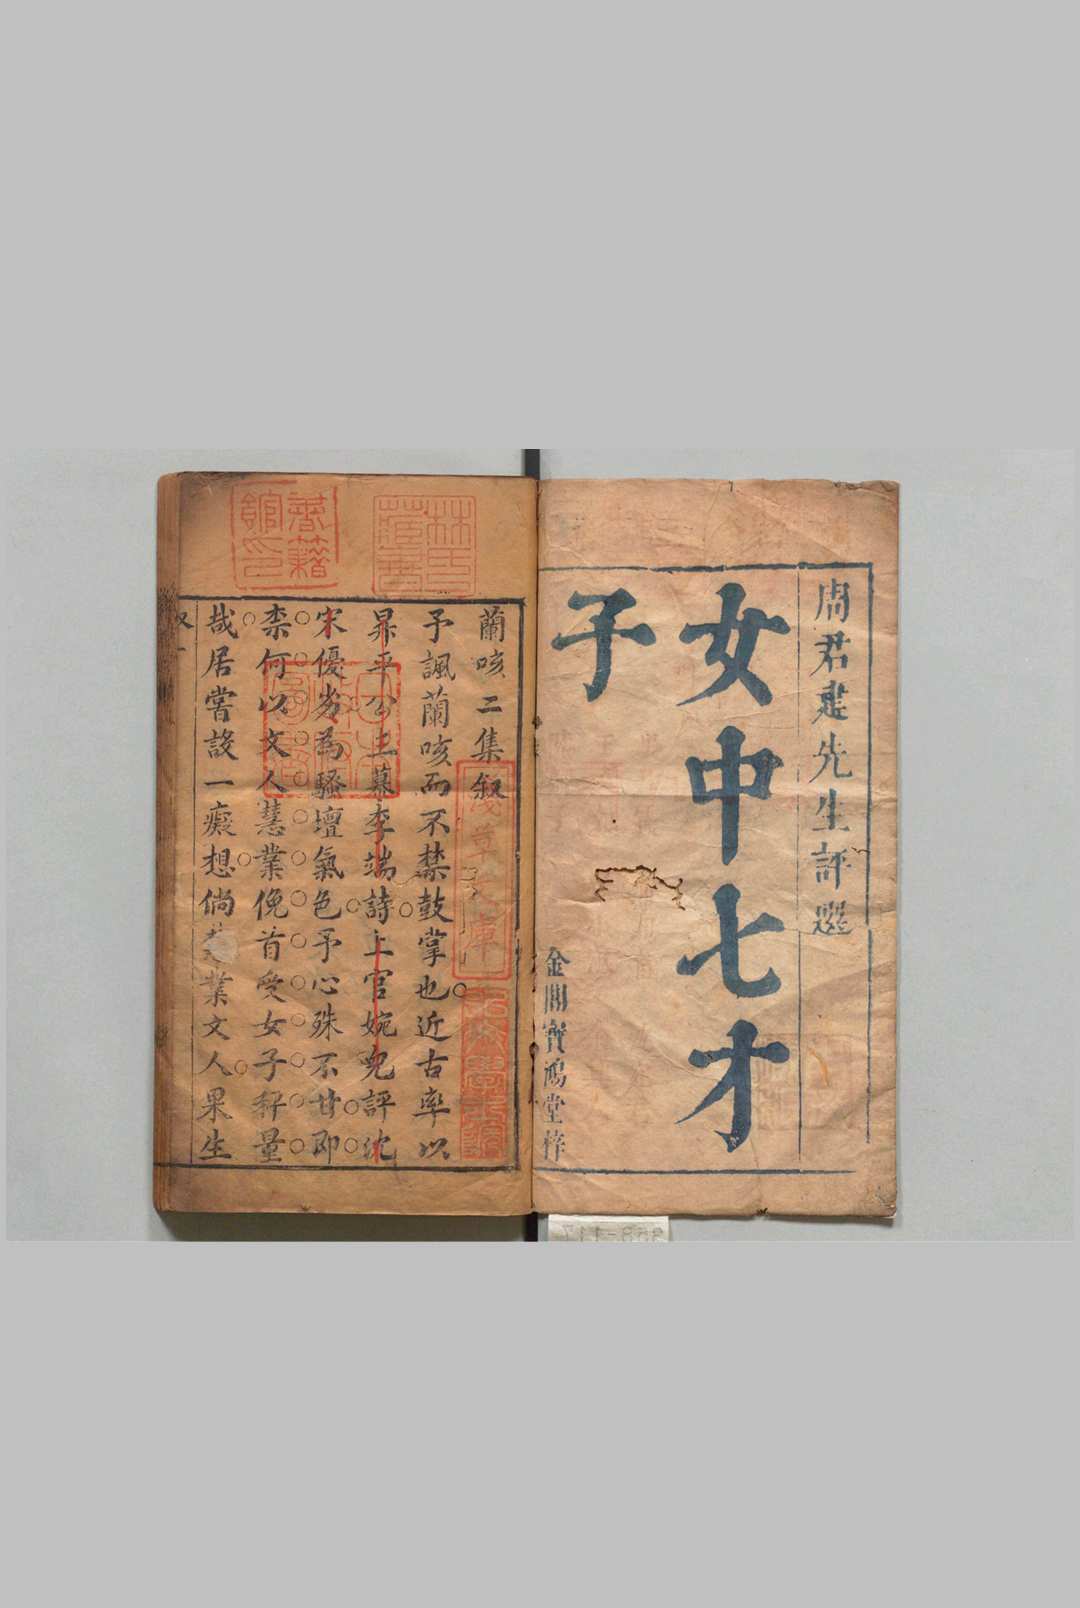 周君建先生評選
女中七才
子
金閶寶鴻堂梓
蘭咳二集叙
予諷蘭咳而不禁鼓掌也近古率以
昇平公主幕李端詩上官婉兒評沈
宋優劣為騷壇氣色予心殊不甘即
柰何以文人慧業俛首受女子秤量
哉居嘗設一癡想倘慧業文人果生
林氏
藏書